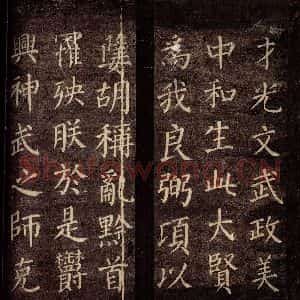 才光文武政美
中和生此大賢
爲我良弼頃以
孽胡稱亂黔首
罹殃朕於是欝
興神武之師克